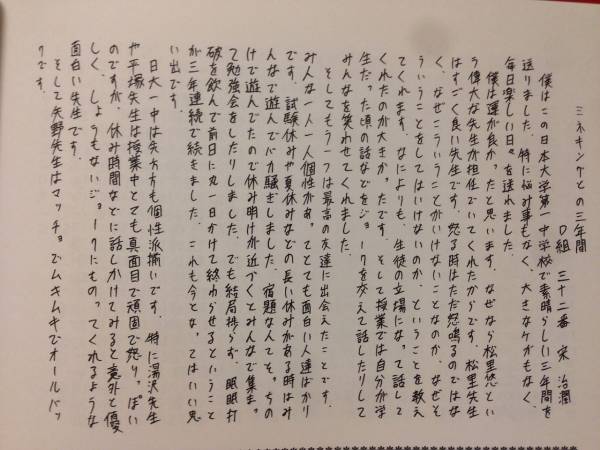 ミネキンケとの三年間
D組 三十二番 宋 治潤
僕はこの日本大学第一中学校で素晴らしい三年間を
送りました。特に悩み事もなく、大きなケガもなく、
毎日楽しい日々を送れました。
僕は運が良かったと思います。なぜなら松里悠とい
う偉大な先生が担任でいてくれたからです。松里先生
はすごく良い先生です。怒る時はただ怒鳴るのではな
く、なぜこういうことがいけないことなのか、なぜそ
ういうことをしてはいけないのか、ということを教え
てくれます。なによりも、生徒の立場になって話して
くれたのが大きかったです。そして授業では自分が学
生だった頃の話などをジョークを交えて話したりして
みんなを笑わせてくれました。
そしてもう一つは最高の友達に出会えたことです。
みんな一人一人個性があってとても面白い人達ばかり
です。試験休みや夏休みなどの長い休みがある時はみ
んなで遊んでバカ騒ぎしました。宿題なんてそっちの
けで遊んでたので休み明けが近づくとみんなで集まっ
て勉強会をしたりしました。でも結局捗らず、眠眠打
破を飲んで前日に丸一日かけて終わらせるということ
が三年連続で続きました。これも今となってはいい思
い出です。
日大一中は先方方も個性派揃いです。特に湯沢先生
や平塚先生は授業中とても真面目で頑固で怒りっぽい
のですが、休み時間などに話しかけてみると意外と優
しく、しょうもないジョークにものってくれるような
面白い先生です。
そして矢野先生はマッチョでムキムキでオールバッ
クです。